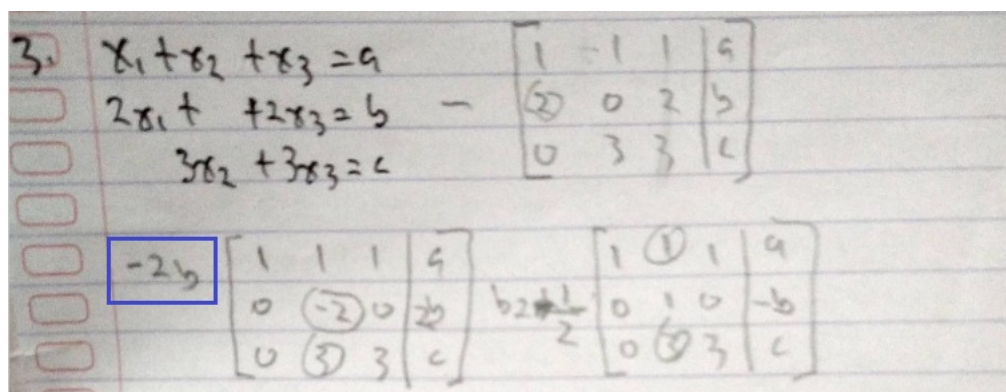 3. x₁ + x₂ + x₃ = a
2x₁ + + 2x₃ = b
3x₂ + 3x₃ = c
- [1 -1 1 | a]
[2 0 2 | b]
[0 3 3 | c]
-2b [1 1 1 | a]
[0 -2 0 | 2b]
[0 3 3 | c]
b2 + 1/2 [1 1 1 | a]
[0 1 0 | -b]
[0 3 3 | c]